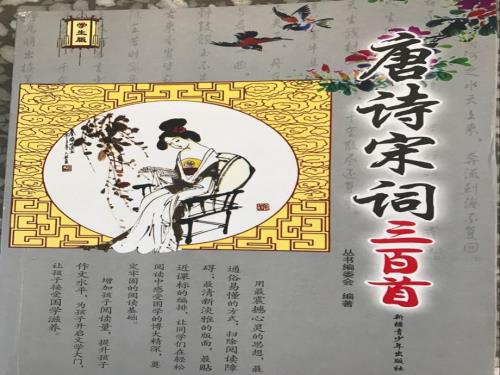 学生版
唐诗宋词
三百首
丛书编委会 编著
新疆青少年出版社
之水天上来，奔流到海不复回
用最震撼心灵的思想，最
通俗易懂的方式，扫除阅读障
碍；最清新淡雅的版面，最贴
近课标的编排，让同学们在轻松
阅读中感受国学的博大精深，奠
定牢固的阅读基础。
增加孩子阅读量，提升孩子
作文水平，为孩子开启文学大门，
让孩子接受国学滋养。